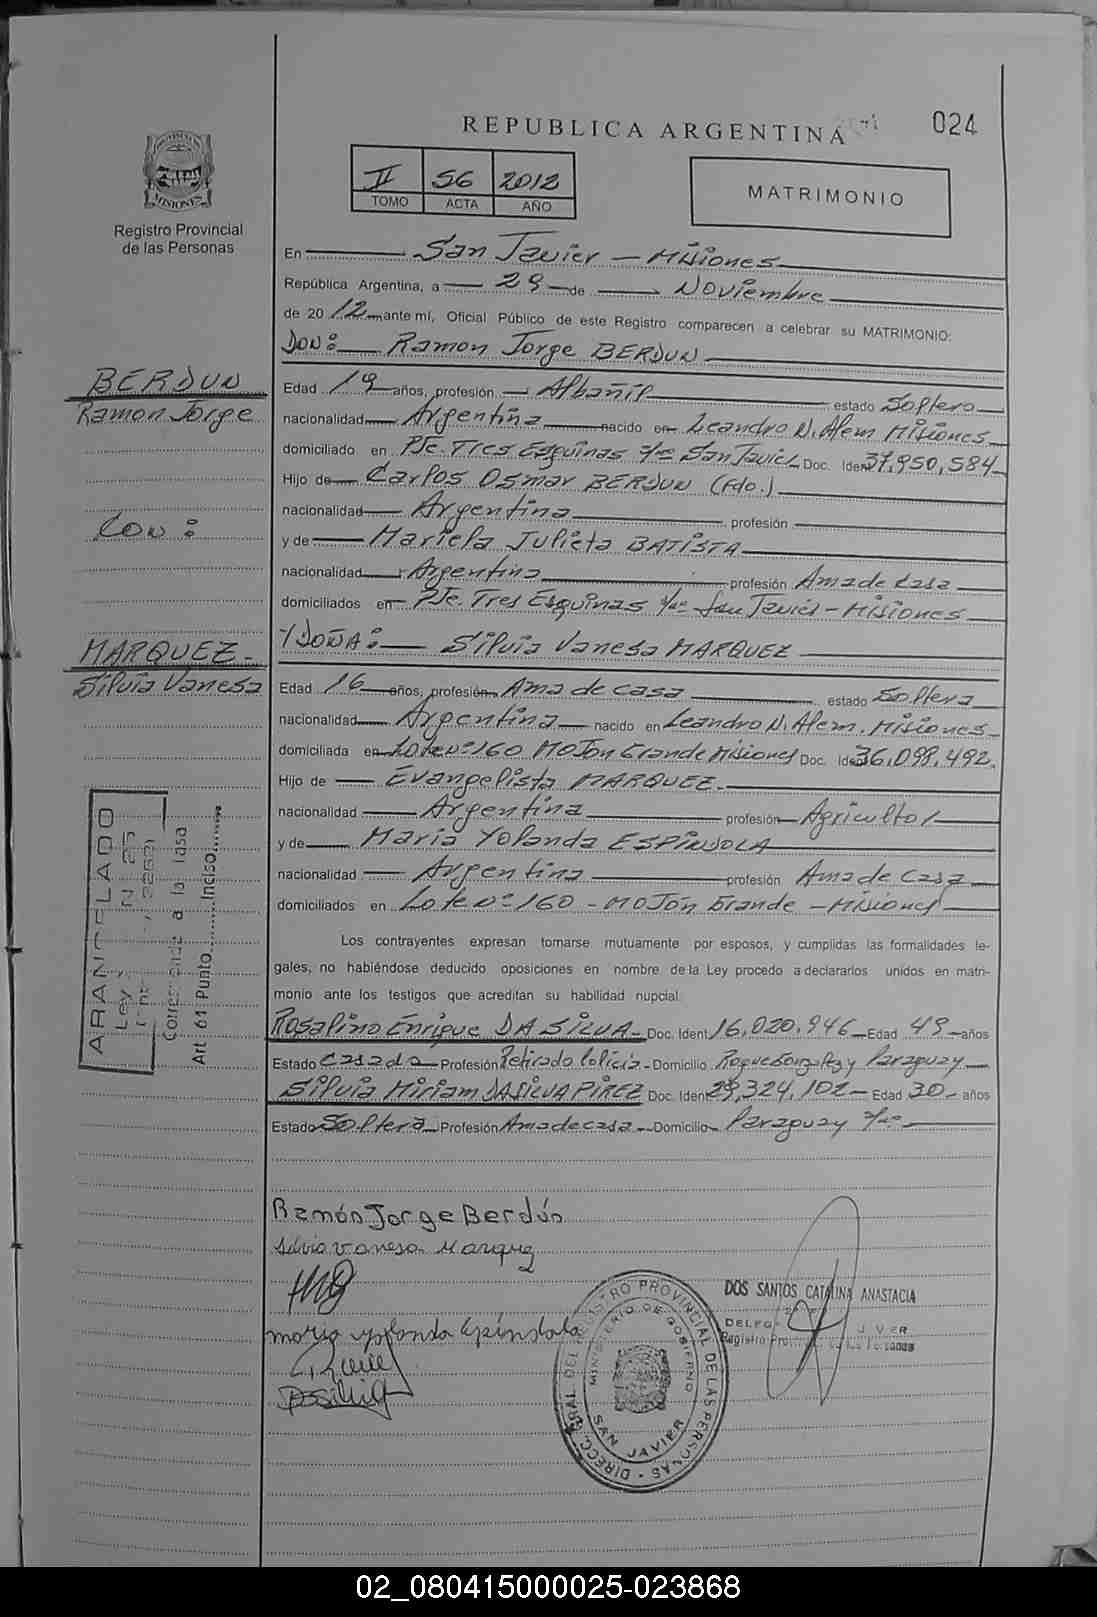 REPUBLICA ARGENTINA
024
II 56 2012
TOMO ACTA AÑO
MATRIMONIO
MISIONES
Registro Provincial
de las Personas
En San Javier - Misiones
República Argentina, a 29 de Noviembre
de 2012 ante mí, Oficial Público de este Registro comparecen a celebrar su MATRIMONIO:
DON: Ramon Jorge BERDUN
BERDUN
Ramon Jorge
Edad 19 años, profesión Albañil estado Soltero
nacionalidad Argentina nacido en Leandro N. Alem Misiones
domiciliado en Pje. Tres Esquinas San Javier Doc. Ident 37,950,584
Hijo de Carlos Osmar BERDUN (Fdo.)
nacionalidad Argentina profesión
CON:
y de Mariela Julieta BATISTA
nacionalidad Argentina profesión Ama de casa
domiciliados en Pje. Tres Esquinas San Javier - Misiones
Y DOÑA: Silvia Vanesa MARQUEZ
MARQUEZ-
Silvia Vanesa
Edad 16 años, profesión Ama de casa estado Soltera
nacionalidad Argentina nacido en Leandro N. Alem. Misiones
domiciliada en Lote Nº 160 Mojon Grande Misiones Doc. Ident 36,098,492.
Hijo de Evangelista MARQUEZ.
nacionalidad Argentina profesión Agricultor
y de Maria Yolanda ESPINDOLA
nacionalidad Argentina profesión Ama de casa
domiciliados en Lote Nº 160 - Mojón Grande - Misiones
ARANCELADO
Ley
Corresponde a la tasa
Art 61 Punto Inciso
Los contrayentes expresan tomarse mutuamente por esposos, y cumplidas las formalidades le-
gales, no habiéndose deducido oposiciones en nombre de la Ley procedo a declararlos unidos en matri-
monio ante los testigos que acreditan su habilidad nupcial.
Rosalino Enrique DA SILVA- Doc. Ident 16,020,946 Edad 49 años
Estado Casado Profesión Retirado Policia - Domicilio Roque Gonzalez y Paraguay
Silvia Miriam DA SILVA PIREZ Doc. Ident 29,324,102 - Edad 30 - años
Estado Soltera Profesión Ama de casa - Domicilio Paraguay
Ramón Jorge Berdún
Silvia Vanesa Marquez
maria yolanda Epindola
DOS SANTOS CATALINA ANASTACIA
DIRECC. GRAL. DEL REGISTRO PROVINCIAL DE LAS PERSONAS
MINISTERIO DE GOBIERNO
SAN JAVIER
02_080415000025-023868